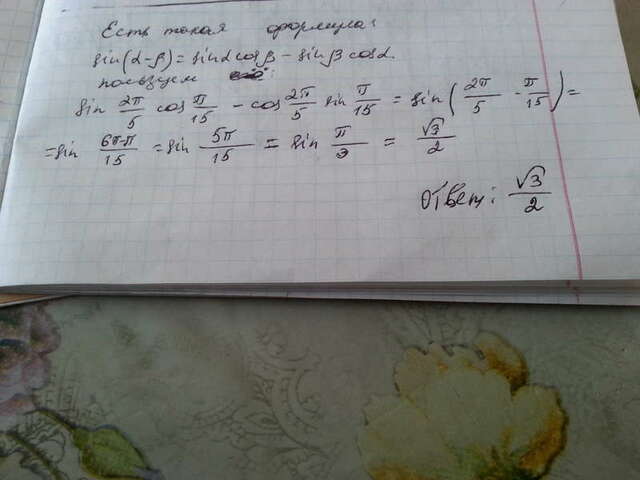 Есть такая формула:
sin(α-β)=sinα cosβ - sinβ cosα.
пользуем
sin 2π/5 cos π/15 - cos 2π/5 sin π/15 = sin(2π/5 - π/15)=
=sin 6π-π/15 =sin 5π/15 = sin π/3 = √3/2
Ответ: √3/2